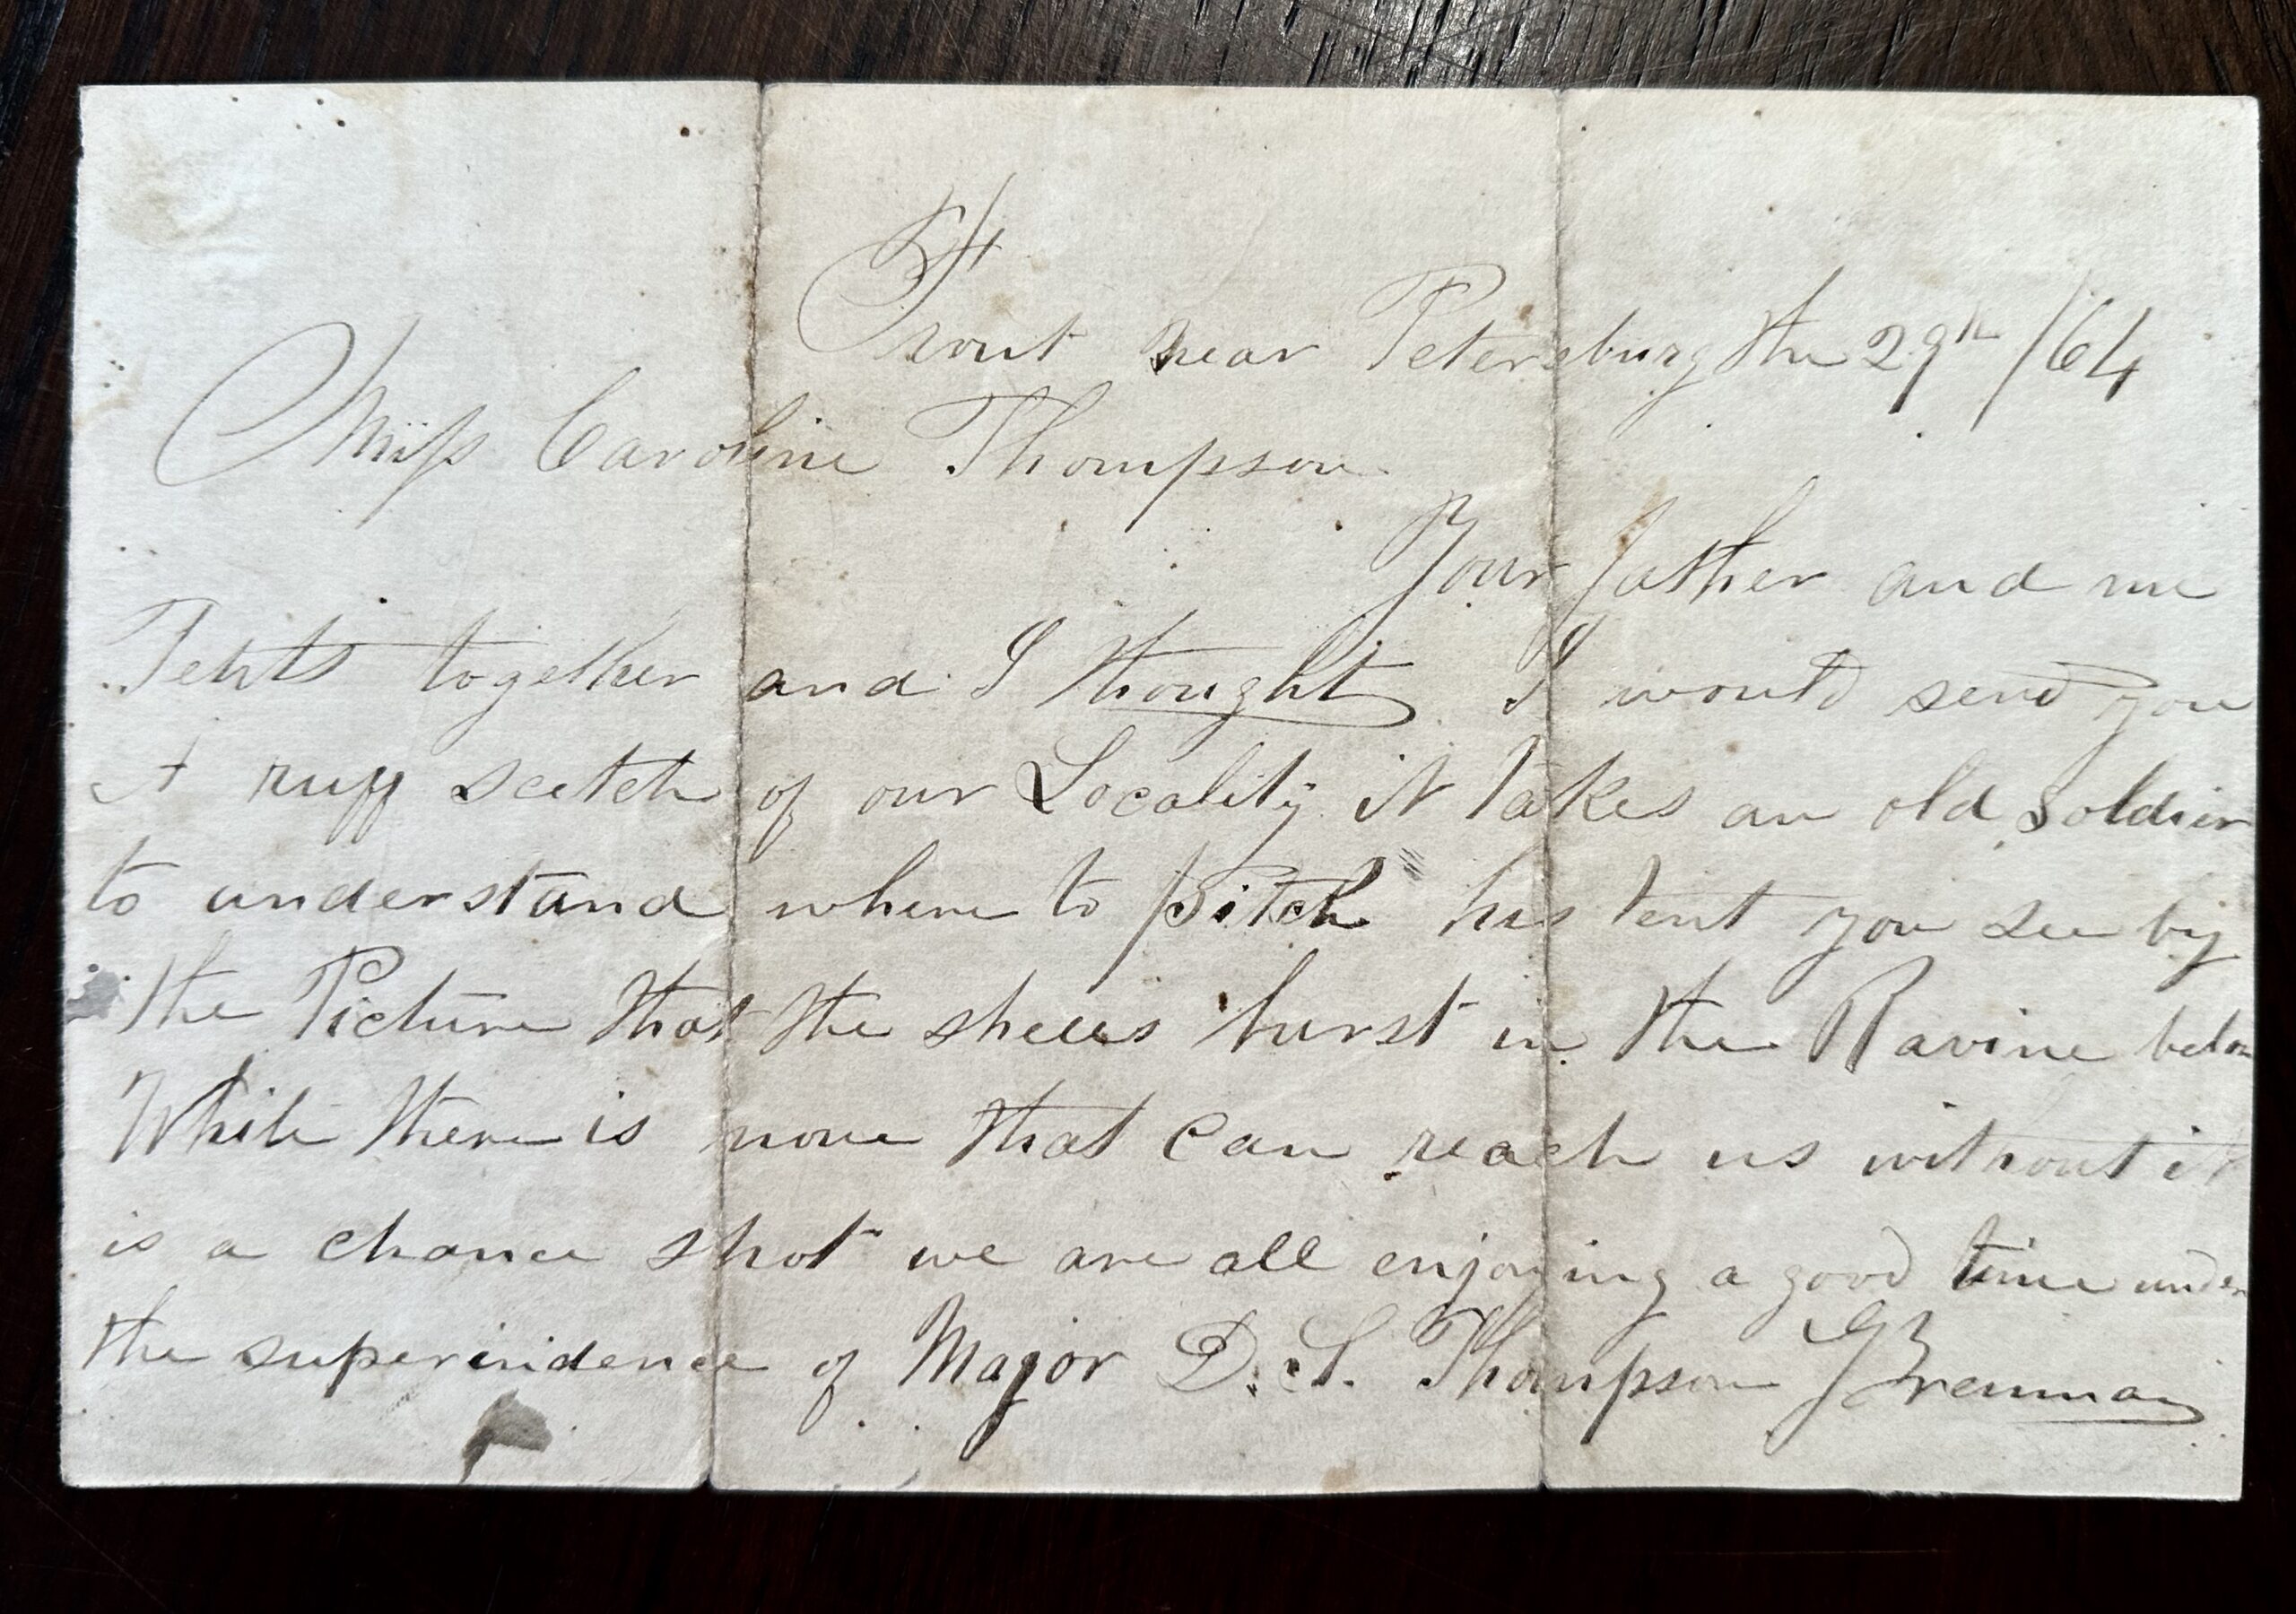 Front near Petersburg the 29th /64
Miss Caroline Thompson
Your father and me
Tents together and I thought I would send you
A ruff scetch of our Locality it takes an old soldier
to understand where to pitch his tent you see by
the Picture that the shells burst in the Ravine below
While there is none that can reach us without it
is a chance shot we are all enjoying a good time under
the superindence of Major D. S. Thompson J Brennan